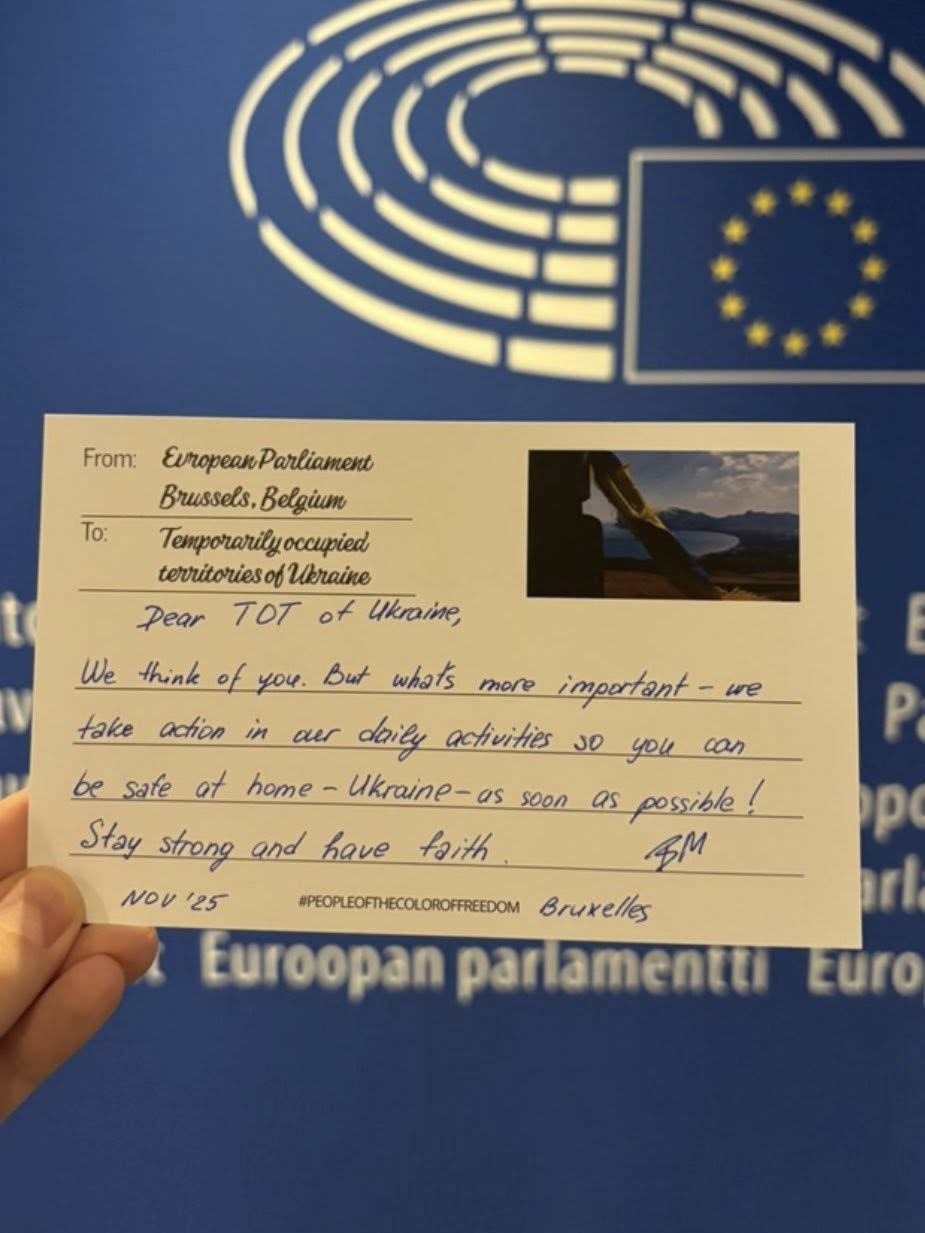 From: European Parliament
Brussels, Belgium
To: Temporarily occupied
territories of Ukraine
Dear TOT of Ukraine,
We think of you. But what's more important - we
take action in our daily activities so you can
be safe at home - Ukraine - as soon as possible!
Stay strong and have faith. BM
NOV '25 #PEOPLEOFTHECOLOROFFREEDOM Bruxelles
Euroopan parlamentti Euro